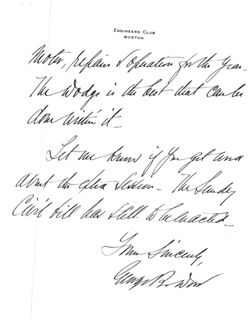 ENGINEERS CLUB
BOSTON
Motor, repairs & operation for the year.
The Dodge is the best that can be
done within it —
Let me know if you get word
about the extra session — The Sunday
Civil bill has still to be enacted —
Yours Sincerely,
George R.